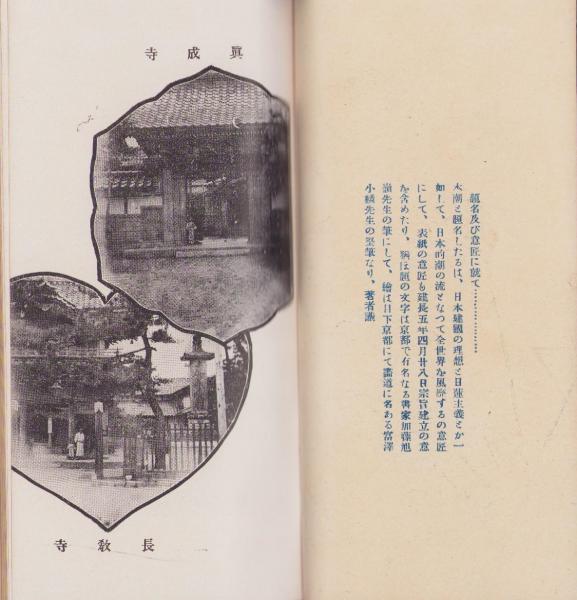 題名及び意匠に就て………………
大潮と題名したるは、日本建國の理想と日蓮主義とか一
如して、日本的潮の流となつて全世界を風靡するの意匠
にして、表紙の意匠も建長五年四月廿八日宗旨建立の意
を含めたり、猶ほ題の文字は京都で有名なる書家加藤旭
嶺先生の筆にして、繪は目下京都にて畵道に名ある富澤
小麟先生の翠筆なり、著者識
眞成寺
一長敎寺